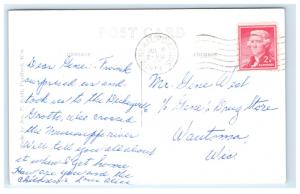 POST CARD
Dear Gene: Frank
surprised us and
took us to the Dickeyville
Grotto, also crossed
the Mississippi river
Will tell you all about
it when I get home
How are you and the
children.
Mr. Gene West
% Gene's Drug Store
Wautoma,
Wis.
2¢